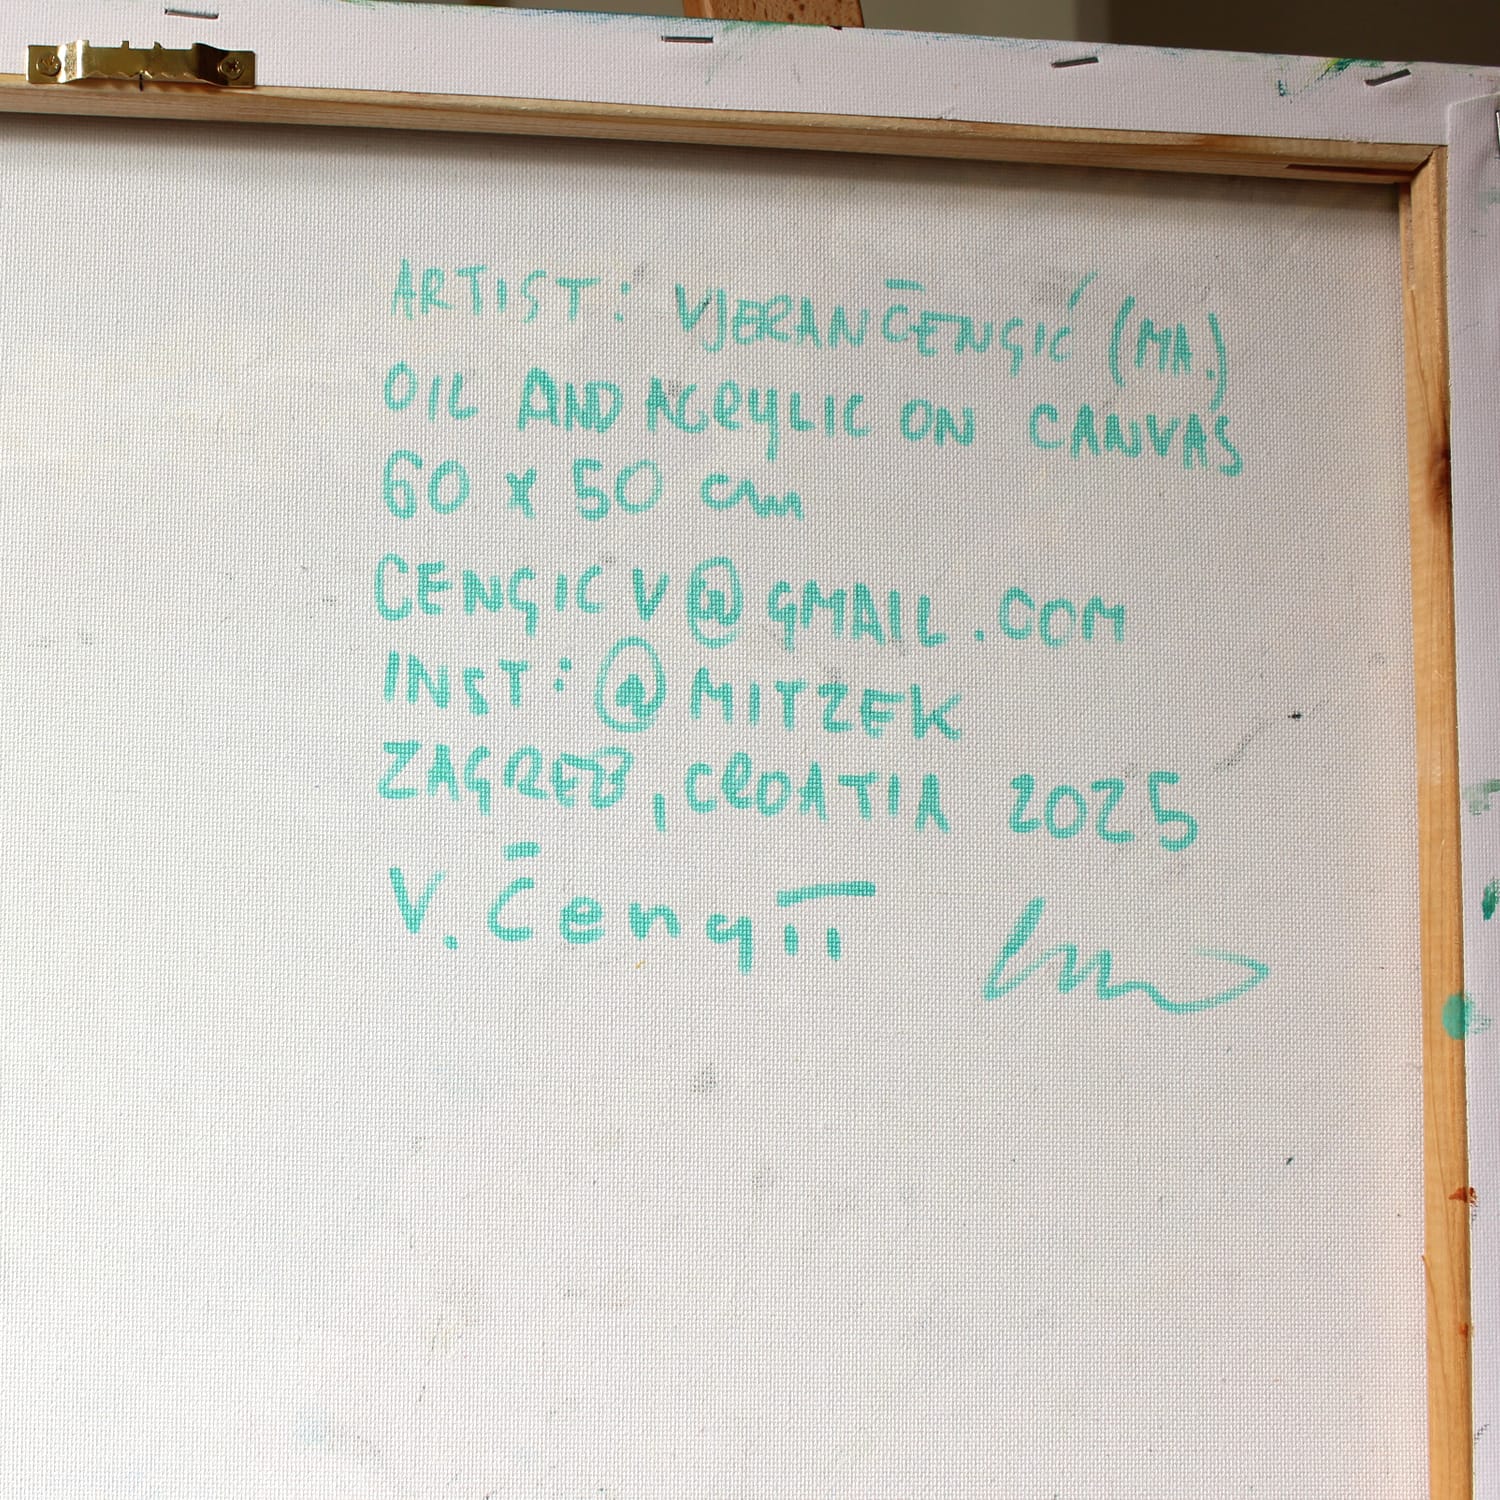 ARTIST: VJERAN ČENGIĆ (MA.)
OIL AND ACRYLIC ON CANVAS
60 x 50 cm
CENGICV@GMAIL.COM
INST: @MITZEK
ZAGREB, CROATIA 2025
V. Čengić